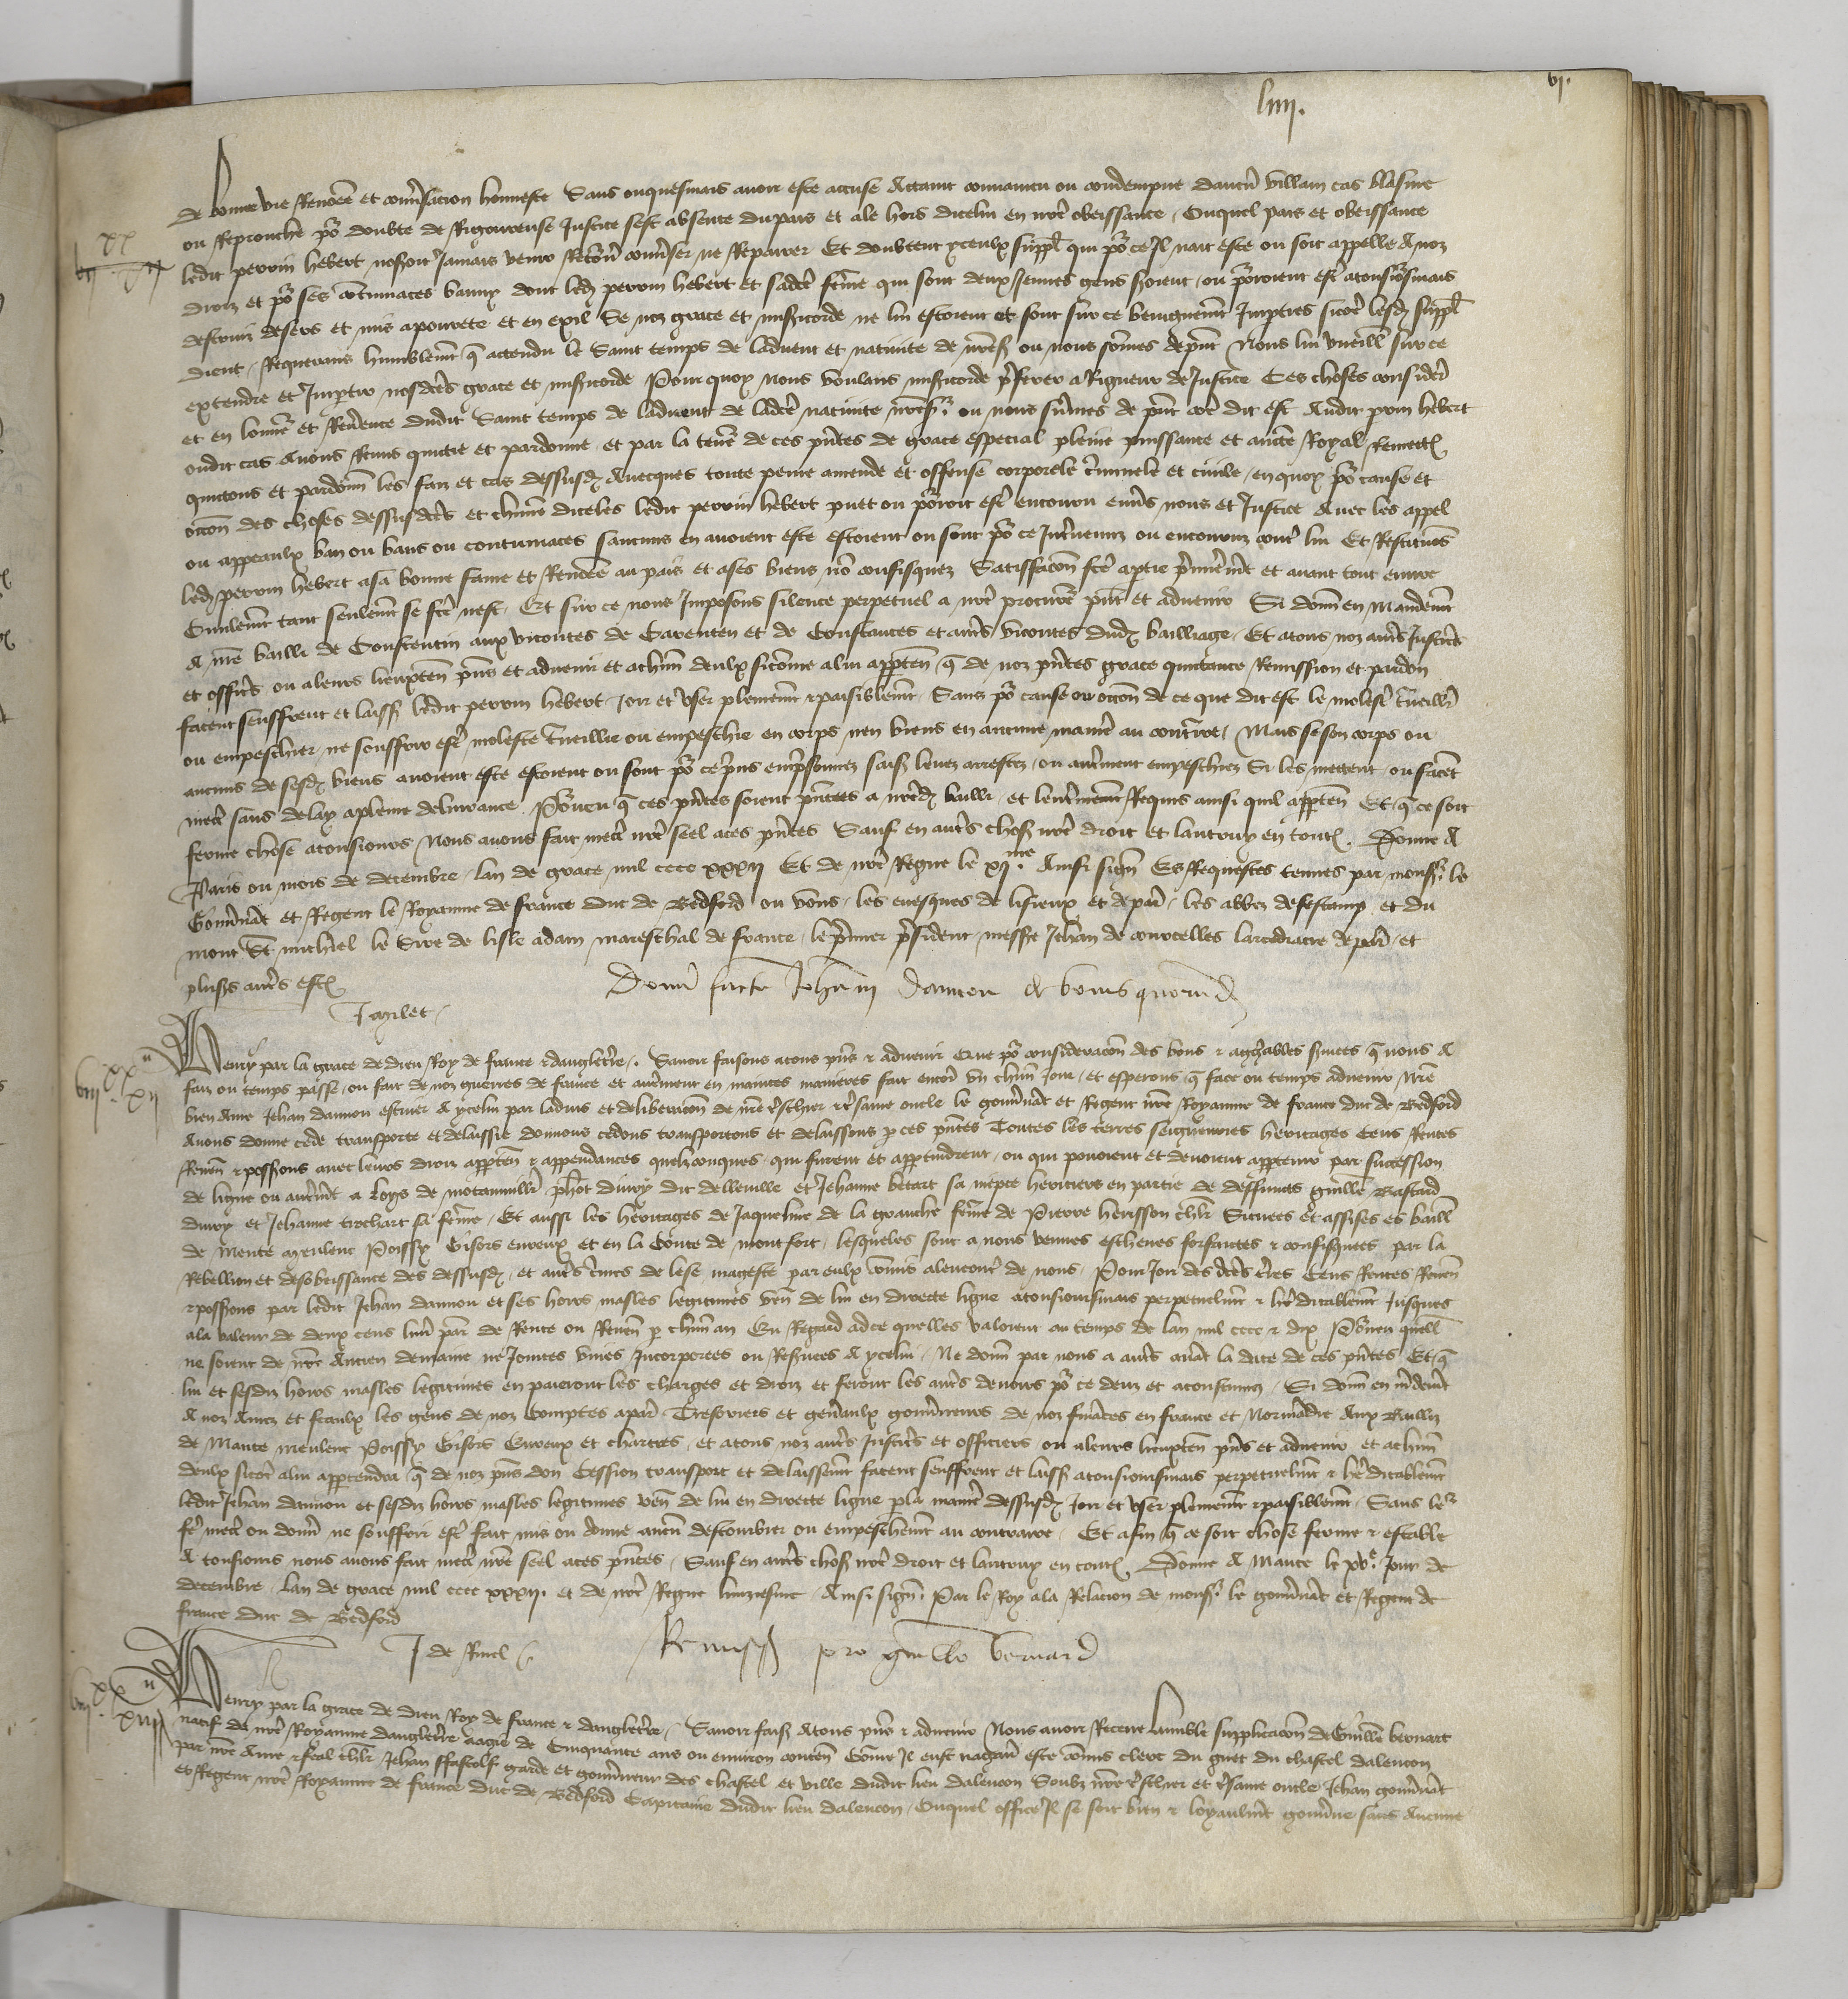 vj.
liiij.
de bonne vie Renõmee et cõnv̾sacion honneste Sans onquesmais auoir este accuse Attaint conuaincu ou condempne daucũ villain cas blasme
ou Reprouche po᷑ doubte de Rigoureuse Justice sest absente du pais et ale hors dicelui en nr̃e obeissance / Ouquel pais et obeissance
ledit perrin hebert noseroit Jamais venir Retoũr conv̾ser ne Repairer Et doubtent yceulx suppl̃ que po᷑ ce Il nait este ou soit appelle A noz
droiz et po᷑ ses cõtumaces banny dont led̃ perrin hebert et sadc̃e fẽme qui sont deux Jeunes gens seroient / ou po᷑roient estr̃ a tousio᷑smais
destruiz desers et mis a pourete et en exil Se noz grace et miśicorde ne lui estoient et sont sur ce benignemẽt Imp̃ties sicõe lesd̃ suppl̃
dient / Requerans humblemẽt q̃ attendu le Saint temps de laduent et natiuite de nr̃e sr̃ ou nous sõmes de p̃nt Nous lui vueill̃ sur ce
extendre et Imp̃tir nosdc̃es grace et miśicorde Pour quoy nous voulans miśicorde p̃ferer a Rigueur de Justice Ces choses consider̃
et en lonne᷑ et Reũence dudit Saint temps de laduent de ladc̃e natiuite nr̃e sr̃ ou nous sũmes de p̃nt cõe dit est Audit perrin hebert
oudit cas Auons Remis quictie et pardonne et par la tene᷑ de ces p̃ntes de grace especial pleine puissance et aucte᷑ Royal Remectõs
quictons et pardonñ les faiz et cas dessusd̃ Auecques toute peine amende et offense corporele c̃iminele et ciuile / en quoy po᷑ cause et
occõn des choses dessusdc̃es et chũne diceles ledit perrin hebert puet ou po᷑roit estr̃ encouru enuers nous et Justice Auec les appel
ou appeaulx ban ou bans ou contumaces saucuns en auoient este estoient ou sont po᷑ ce Int̃uenuz ou encouruz cont̃ lui Et Restituõs
led̃ perrin hebert a sa bonne fame et Renõmee au pais et a ses biens nõ confisquez Satisfaccõn fc̃e a p̃tie p̃mierem̃t et auant tout euure
Ciuilemẽt tant seulemẽt se fc̃e nest / Et sur ce nous Imposons silence perpetuel a nr̃e procure᷑ p̃nt et aduenir Si donñ en Mandemẽt
A nr̃e bailli de Constentin aux vicontes de Carenten et de Constances et aut̃s vicontes dud̃ bailliage / Et a tous noz aut̃s Justic̃s
et offic̃s ou a leurs lieuxteñ p̃ns et aduenir et a chũn deulx sicõme a lui apparteñ q̃ de noz p̃ntes grace quictance Remission et pardon
facent seuffrent et laiss̃ ledit perrin hebert Joir et vser plenemẽt ꝛ paisiblemẽt Sans po᷑ cause ou occõn de ce que dit est le molest̃ t̃ueill̃r
ou empeschier / ne souffrir estr̃ moleste t̃ueillie ou empeschie en corps nen biens en aucune manie᷑ au cont̃re / Mais se son corps ou
aucuns de sesd̃ biens auoient este estoient ou sont po᷑ ce p̃ns emp̃sonnez saisiz leuez arrestez / ou aut̃ment empeschiez Si les mettent ou facẽt
mectr̃ sans delay a pleine deliurance Po᷑ueu q̃ ces p̃ntes soient p̃ntees a nr̃ed̃ bailli et lentermemẽt Requis ainsi quil apparteñ Et q̃ ce soit
ferme chose a tousiours Nous auons fait mectr̃ nr̃e seel a ces p̃ntes Sauf en aut̃s chos̃ nr̃e droit et lautruy en toutes̃. Donne A
Paris ou mois de decembre / lan de grace mil cccc xxxij Et de nr̃e Regne le xj.me Ainsi sign̾ Es Requestes tenues par monss̃r le
Gouũnãt et Regent le Royaume de france Duc de Bedford ou vous / les euesques de lisieux et de par̃ / les abbez de fescamp et du
mont s̃t michiel le Sire de lisle adam mareschal de france / le p̃mier p̃sident messr̃e Jehan de courcelles larcediacre de par̃ / et
pluss̃s aut̃s estoĩs
Jaylet
Donũ factũ Joh̃ni Dannou de bonis quorũd̃
viijxx xij
Henry par la grace de dieu Roy de france ꝛ dangleterre. Sauoir faisons a tous p̃ns ꝛ aduenir Que po᷑ consideraciõn des bons ꝛ aggr̾ables s̾uices q̃ nous A
faiz ou temps passe / ou fait de noz guerres de france et aut̃ment en maintes manieres fait encor̃ vñ chũn Jour / et esperons q̃ face ou temps aduenir Nr̃e
bien Ame Jehan dannou escuier A ycelui par laduis et deliberaciõn de nr̃e t̃schier ꝛ t̃same oncle le gouũnãt et Regent nr̃e Royaume de france duc de Bedford
Auons donne cede transporte et delaissie donnons cedons transportons et delaissons ꝑ ces p̃ntes Toutes les terres seigneuries heritages Cens Rentes
Reueñ ꝛ possessions auec leurs droiz apparteñ ꝛ appendances quelzconques qui furent et appartindrent / ou qui pouoient et deuoient appartenir par succession
de ligne ou aut̃mẽt a Loys de p̃hot diury dit delleuille et Jehanne betart sa niepce heritiere en partie de deffuncts Guille Bastard
diury et Jehanne trechart sa fẽme / Et aussi les heritages de Jaqueline de la granche fẽme de Pierre herisson ch̃lr Situees et assises es baill̃
de Mente Meulent Poissy Gisors eureux et en la Conte de montfort / lesqueles sont a nous venues escheues forfaictes ꝛ confisquees par la
Rebellion et desobeissance des dessusd̃ / et aut̃s c̃imes de lese mageste par eulx cõmis alencont̃ de nous. Pour Joir des dc̃es t̃res Cens Rentes Reueñ
ꝛ possess̃ons par ledit Jehan dannou et ses hoirs masles legitimes veñ de lui en directe ligne a tousioursmais perpetuelmẽt ꝛ heditablemẽt Jusques
a la valeur de deux cens liu̾ par̃ de Rente ou Reueñ ꝑ chũn an Eu Regard ad ce quelles valoient au temps de lan mil cccc ꝛ dix Po᷑ueu quell̃
ne soient de nr̃e Ancien demaine ne Jointes vnies Incorporees ou Reseruees A ycelui / Ne donñ par nous a aut̃s auãt la date de ces p̃ntes Et q̃
lui et sesdiz hoirs masles legitimes en paieront les charges et droiz et feront les aut̃s deuoirs po᷑ ce deuz et acoustumez / Si donñ en mãdemẽt
A noz Amez et feaulx les gens de noz Comptes a par̃ Tresoriers et gen̾aulx gouũneurs de noz finãces en france et Normãdie Aux Bailliz
de Mante Meulent Poissy Gisors Eureux et chartres / et a tous noz aut̃s Justic̃s et officiers ou a leurs lieuxteñ p̃ns et aduenir et a chũn
deulx sicõe a lui appartendra q̃ de noz p̃ns don Cession transport et delaissemẽt facent seuffrent et laiss̃ a tousioursmais perpetuelmẽt ꝛ heditablemẽt
ledit Jehan dannou et sesdiz hoirs masles legitimes veñ de lui en directe ligne ꝑ la manie᷑ dessusd̃ Joir et vser plenemẽt ꝛ paisiblemẽt / Sans le᷑
fer̃ mectr̃ ou donñ ne souffrir estr̃ fait mis ou donne aucũ destourbier ou empeschemẽt au contraire / Et afin q̃ ce soit chose ferme ꝛ estable
A tousiours nous auons fait mectr̃ nr̃e seel a ces p̃ntes / Sauf en aut̃s chos̃ nr̃e droit et lautruy en toutes̃ Donne A Mante le xve Jour de
decembre / lan de grace mil cccc xxxij. et de nr̃e Regne lunziesme. Ainsi sign̾. Par le Roy a la Relacion de monss̃r le gouũnãt et Regent de
france Duc de Bedford
J de Rinel
Remiss̃ pro Guill̃o Bernard
viijxx xiij
Henry par la grace de dieu Roy de france ꝛ dangleterre / Sauoir fais̃ A tous p̃ns ꝛ aduenir Nous auoir Receue lumble supplicaciõn de Guille bernart
natif de nr̃e Royaume dangleterre aagie de Cinquante ans ou enuiron conteñ Cõme Il eust nagair̃ este cõmis clerc du guet du chastel dalencon
par nr̃e Ame ꝛ feal ch̃lr Jehan ffastolf garde et gouũneur des chastel et ville dudit lieu dalencon Soubz nr̃e t̃schier et t̃same oncle Jehan gouũnãt
et Regent nr̃e Royaume de france duc de Bedford Capitaine dudit lieu dalencon / Ouquel office Il se soit bien ꝛ loyaulmẽt gouũne sans Aucune